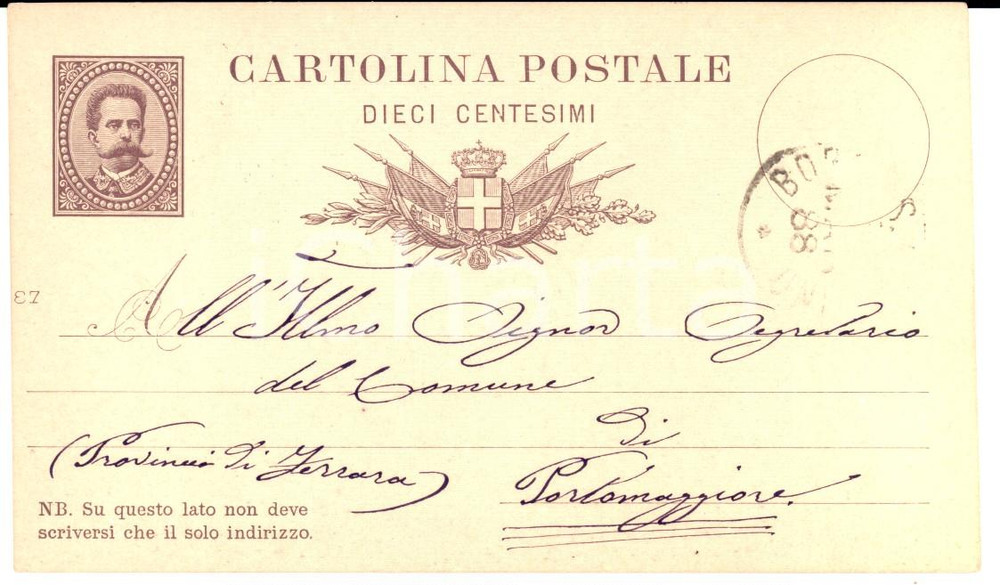 CARTOLINA POSTALE
DIECI CENTESIMI
BO
88
37
All'Illmo Signor Segretario
del Comune
di
(Provincia di Ferrara)
Portomaggiore.
NB. Su questo lato non deve
scriversi che il solo indirizzo.